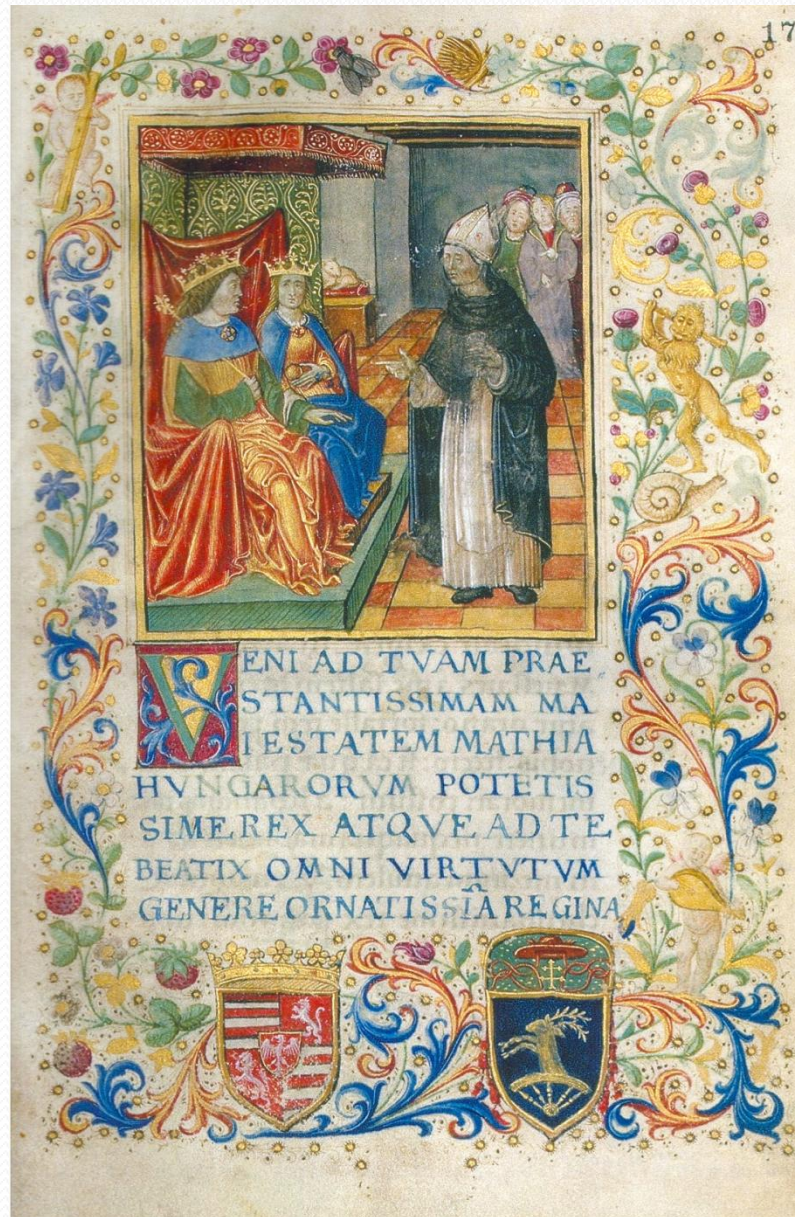 17
VENI AD TVAM PRAE
STANTISSIMAM MA
IESTATEM MATHIA
HVNGARORVM POTĒTIS
SIME REX ATQVE AD TE
BEATIX OMNI VIRTVTVM
GENERE ORNATISSIA̅ REGINA